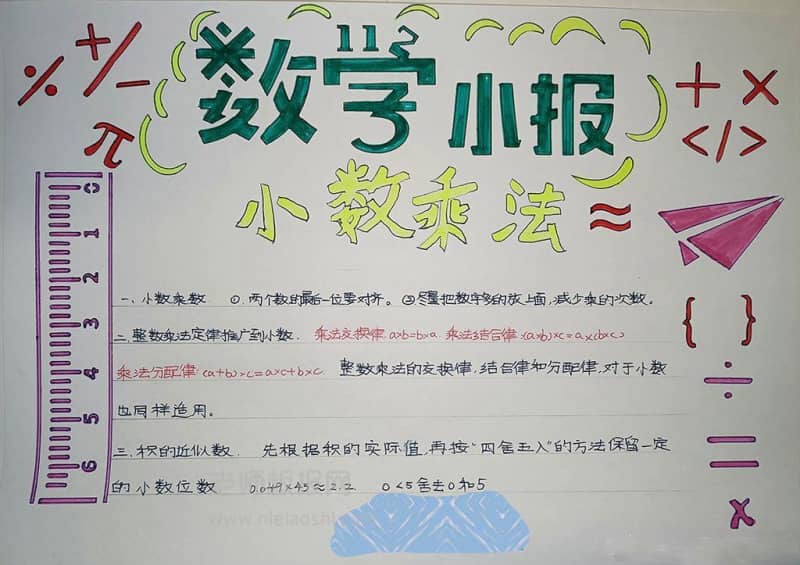 数学小报
小数乘法
÷ + / − π
+ ×
</>
≈
0 1 2 3 4 5 6
{ }
÷
=
x
一、小数乘数 ①.两个数的最后一位要对齐。②尽量把数字多的放上面,减少乘的次数。
二.整数乘法定律推广到小数. 乘法交换律:a×b=b×a. 乘法结合律:(a×b)×c=a×(b×c)
乘法分配律:(a+b)×c=a×c+b×c. 整数乘法的交换律,结合律和分配律,对于小数
也同样适用。
三.积的近似数. 先根据积的实际值,再按"四舍五入"的方法保留一定
的小数位数 0.049×45≈2.2 0<5舍去0和5
老师胡报网